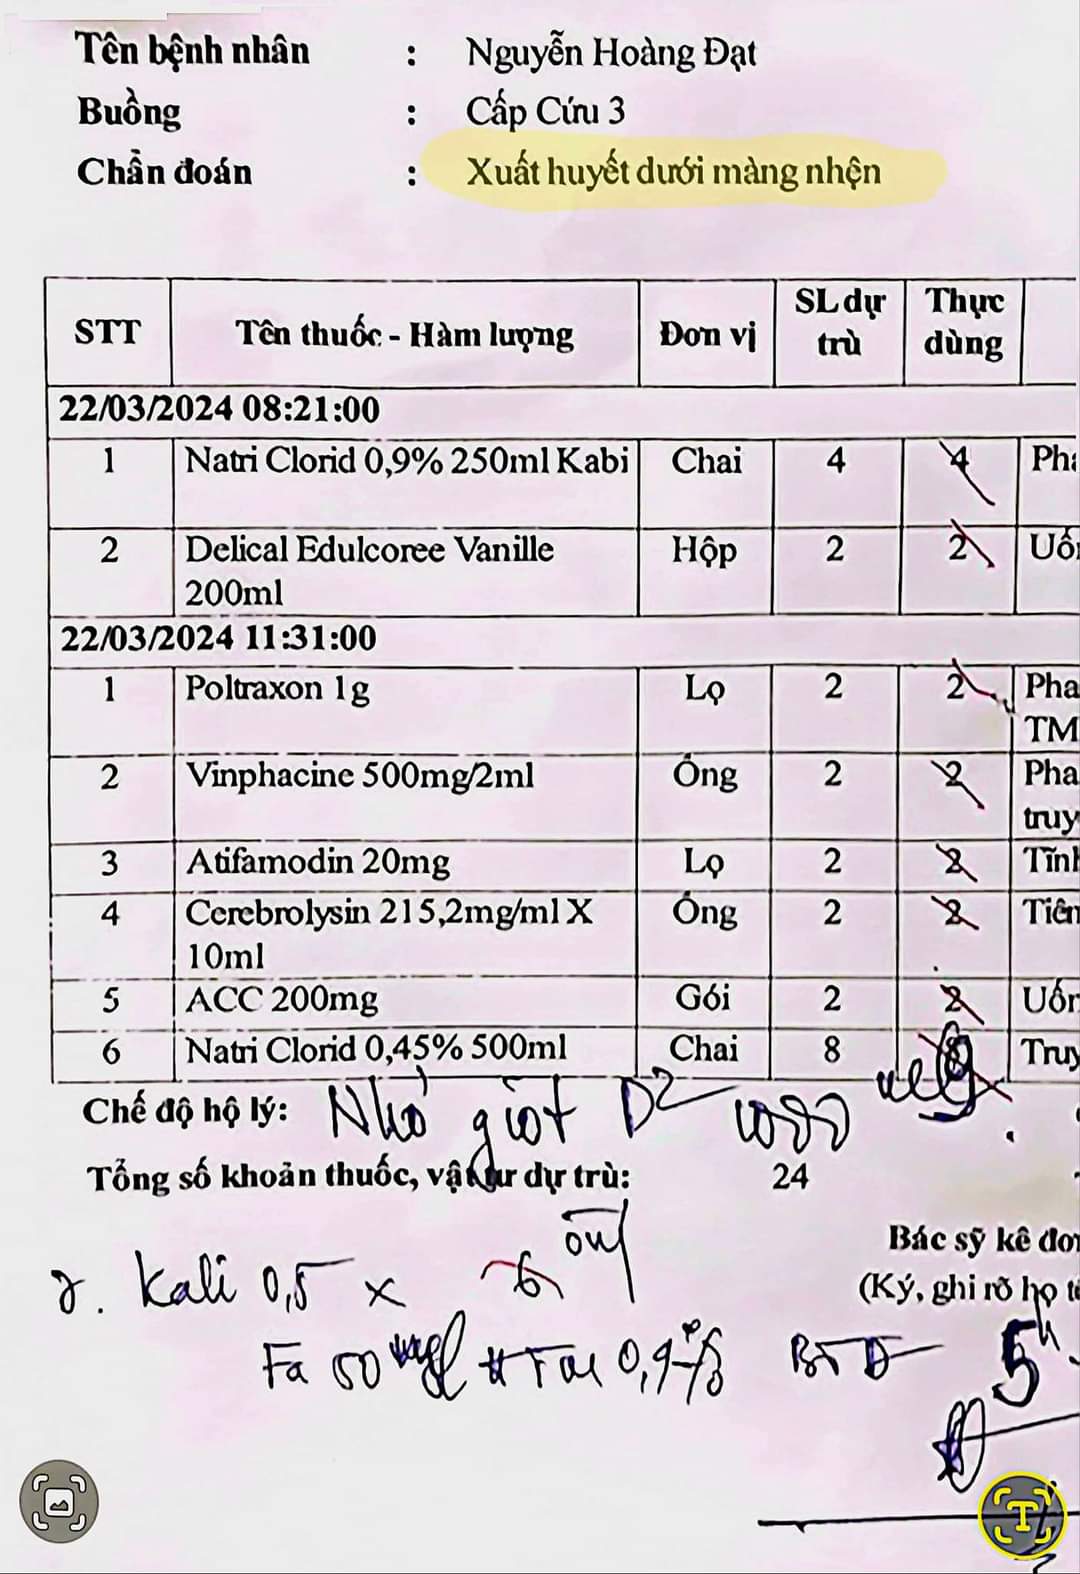 Tên bệnh nhân : Nguyễn Hoàng Đạt
Buồng : Cấp Cứu 3
Chẩn đoán : Xuất huyết dưới màng nhện
STT Tên thuốc - Hàm lượng Đơn vị SL dự trù Thực dùng
22/03/2024 08:21:00
1 Natri Clorid 0,9% 250ml Kabi Chai 4 4 Pha
2 Delical Edulcoree Vanille Hộp 2 2 Uốn
200ml
22/03/2024 11:31:00
1 Poltraxon 1g Lọ 2 2 Pha
TM
2 Vinphacine 500mg/2ml Ống 2 2 Pha
truy
3 Atifamodin 20mg Lọ 2 2 Tĩnh
4 Cerebrolysin 215,2mg/ml X Ống 2 2 Tiêm
10ml
5 ACC 200mg Gói 2 2 Uốn
6 Natri Clorid 0,45% 500ml Chai 8 8 Truy
Chế độ hộ lý: Nhỏ giọt D2
Tổng số khoản thuốc, vật tư dự trù: 24
Bác sỹ kê đơn
(Ký, ghi rõ họ tê
Kali 0,5 x 6 ống
0,9% BTĐ 5